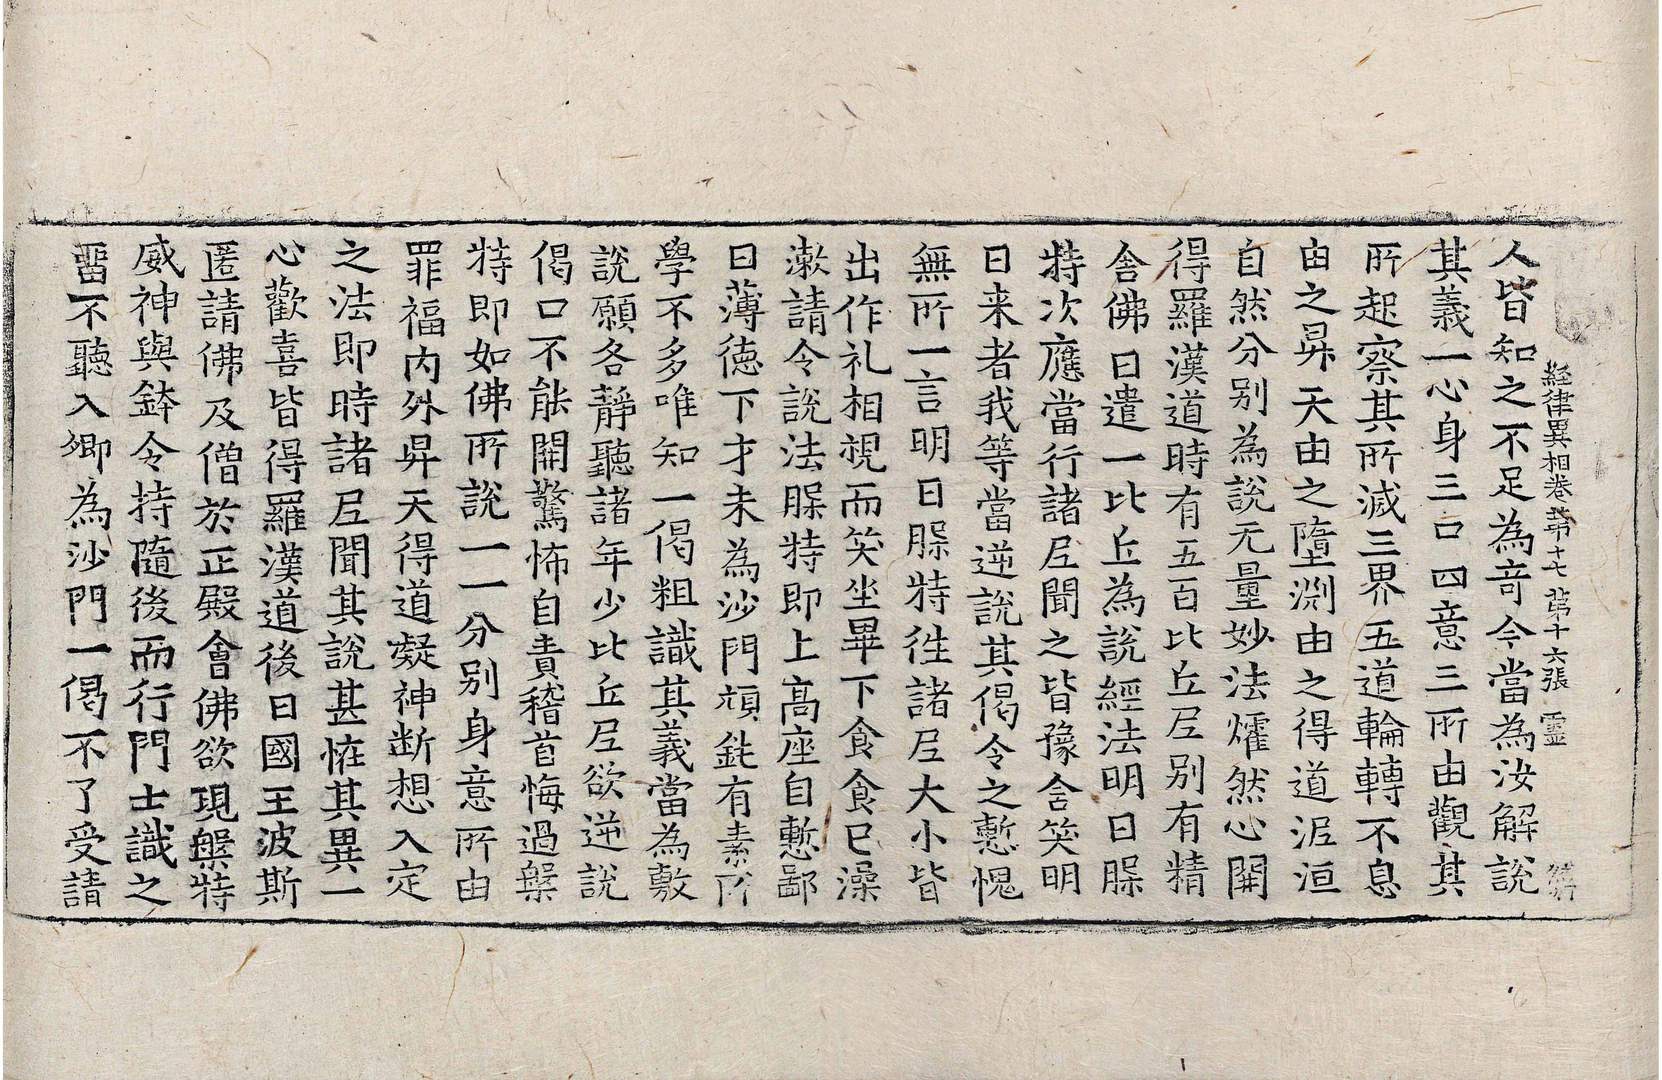 経律異相卷第十七 第十六張 靈
人皆知之不足為竒今當為汝解説
其義一心身三口四意三所由觀其
所起察其所滅三界五道輪轉不息
由之昇天由之墮渕由之得道泥洹
自然分别為説无量妙法燿然心開
得羅漢道時有五百比丘尼别有精
舍佛日遣一比丘為説經法明日䏰
特次應當行諸尼聞之皆豫含笑明
日来者我等當逆説其偈令之慙愧
無所一言明日䏰特徃諸尼大小皆
出作礼相視而笑坐畢下食食已澡
漱請令説法䏰特即上髙座自慙鄙
曰薄徳下才未為沙門頑鈍有素所
學不多唯知一偈粗識其義當為敷
說願各靜聽諸年少比丘尼欲逆説
偈口不能開驚怖自責稽首悔過槃
特即如佛所説一一分别身意所由
罪福内外昇天得道凝神断想入定
之法即時諸尼聞其説甚恠其異一
心歡喜皆得羅漢道後日國王波斯
匿請佛及僧於正殿會佛欲現槃特
威神與鉢令持隨後而行門士識之
畱不聽入卿為沙門一偈不了受請